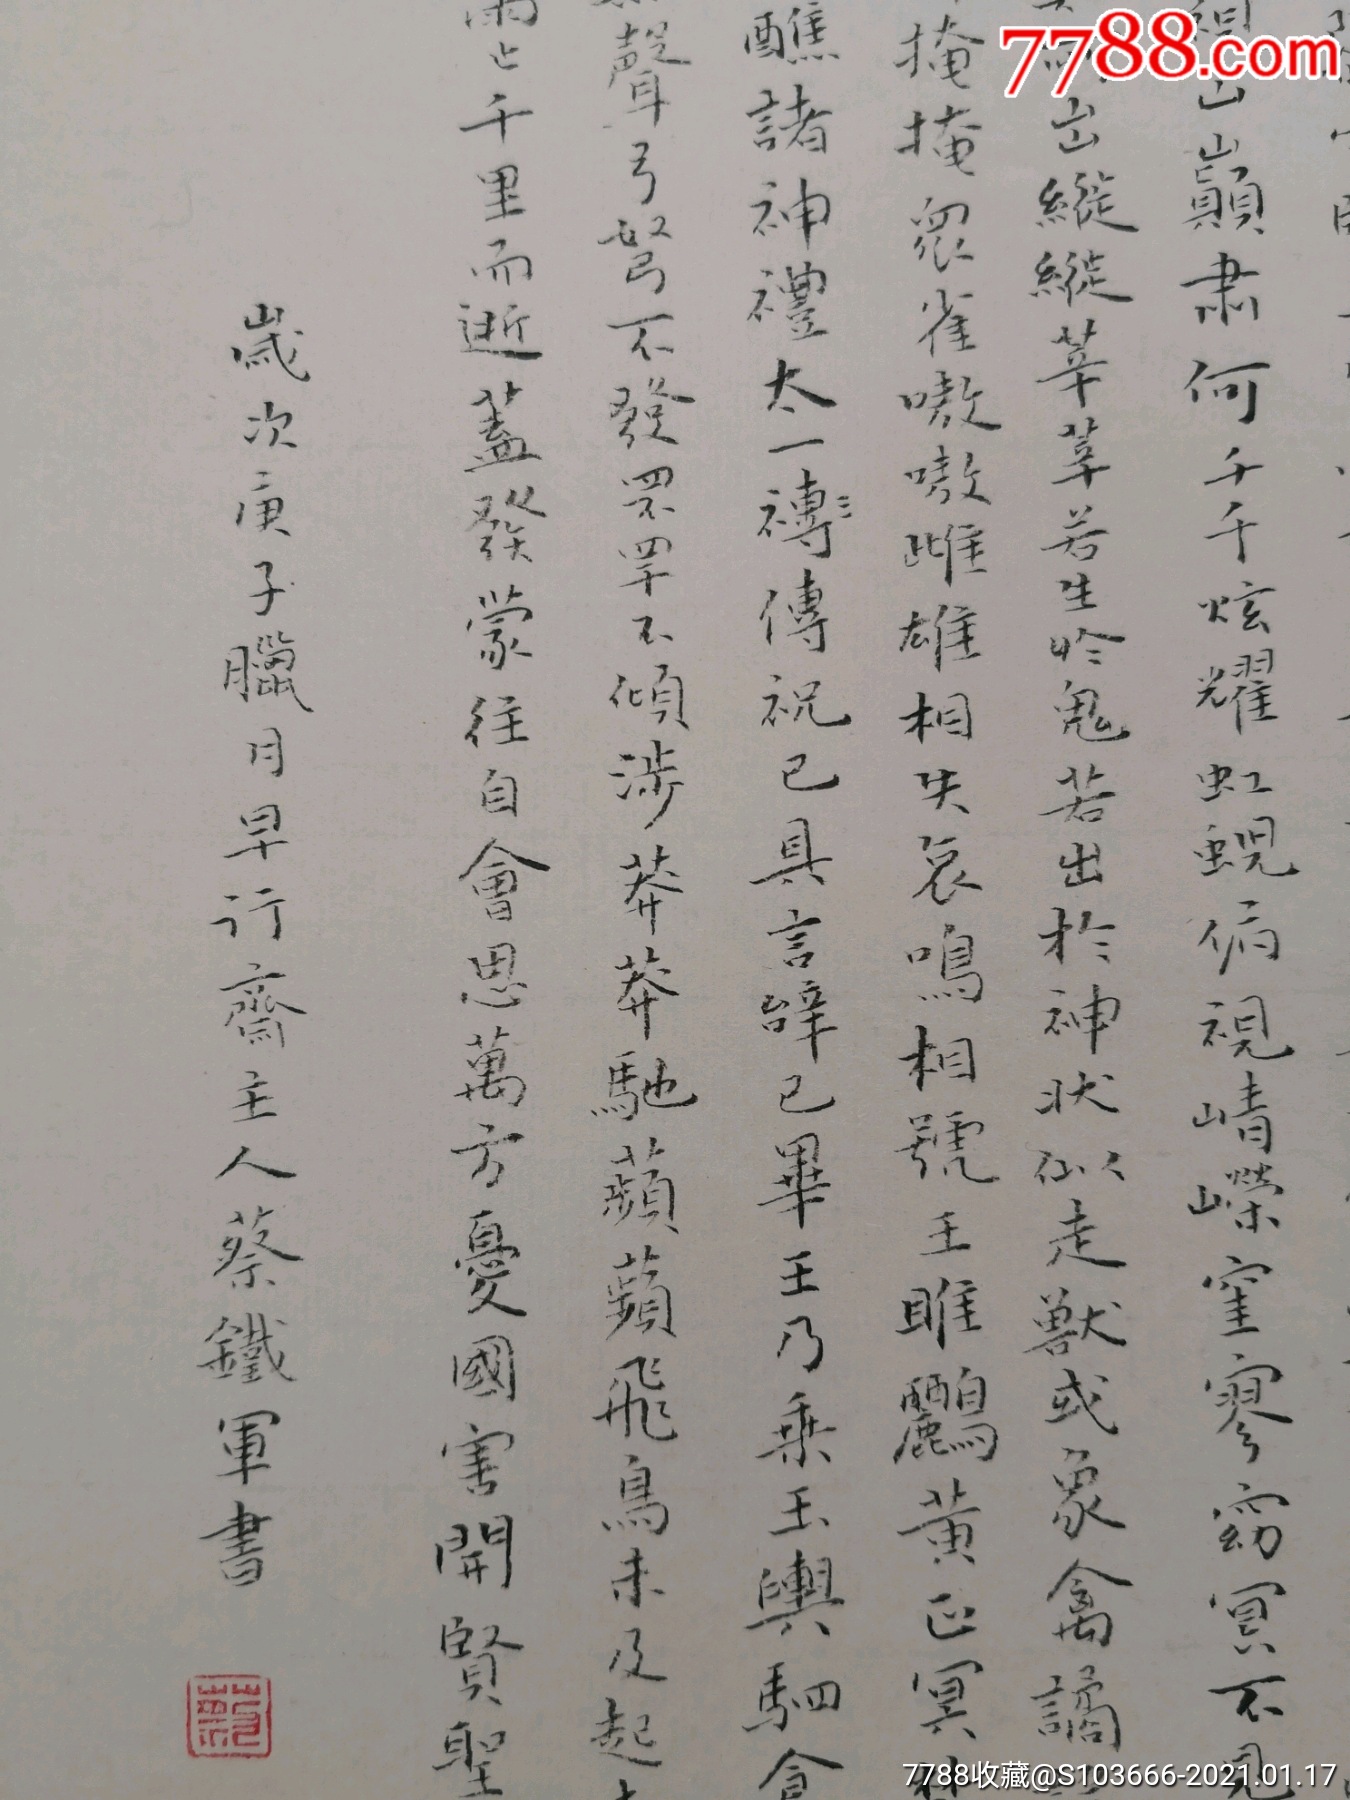 7788.com
山巔肅何千千炫耀虹蜺俯視崝嶸窐寥窈冥不見
岀縱縱莘莘若生於鬼若出於神狀似走獸或象禽譎
掩掩眾雀嗷嗷雌雄相失哀鳴相號王雎鸝黃正冥
醮諸神禮太一礴傳祝已具言辭已畢王乃乘玉輿駟倉
聲弓弩不發罘罕不傾涉莽莽馳蘋蘋飛鳥未及起
雨止千里而逝蓋發蒙往自會思萬方憂國害開賢聖
歲次庚子臘月早行齋主人蔡鐵軍書
7788收藏@S103666-2021.01.17